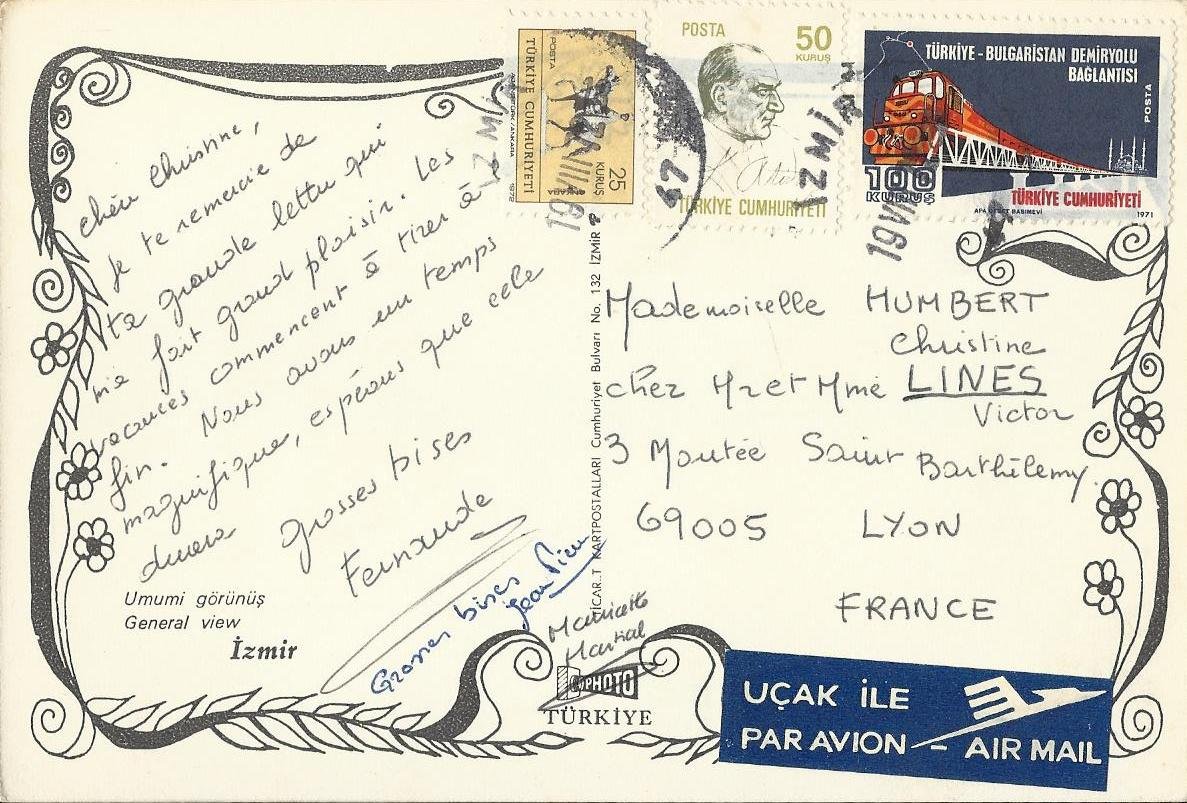 chère Christine,
Je te remercie de
ta grande lettre qui
m'a fait grand plaisir. Les
vacances commencent à tirer à
fin. Nous avons un temps
magnifique, espérons que cela
durera
grosses bises
Fernande
Grosses bises
Jean Pierre
Martial
Umumi görünüş
General view
İzmir
KARTPOSTALLARI Cumhuriyet Bulvarı No. 132 İZMİR
PHOTO
TÜRKİYE
POSTA
TÜRKİYE CUMHURİYETİ
25
KURUŞ
ANKARA
1972
POSTA
50
KURUŞ
TÜRKİYE CUMHURİYETİ
TÜRKİYE - BULGARİSTAN DEMİRYOLU
BAĞLANTISI
POSTA
100
KURUŞ
TÜRKİYE CUMHURİYETİ
APA OFSET BASIMEVİ
1971
İZMİR
İZMİR
Mademoiselle HUMBERT
Christine
chez Mr et Mme LINES
Victor
3 Montée Saint Barthélemy.
69005 LYON
FRANCE
UÇAK İLE
PAR AVION - AIR MAIL